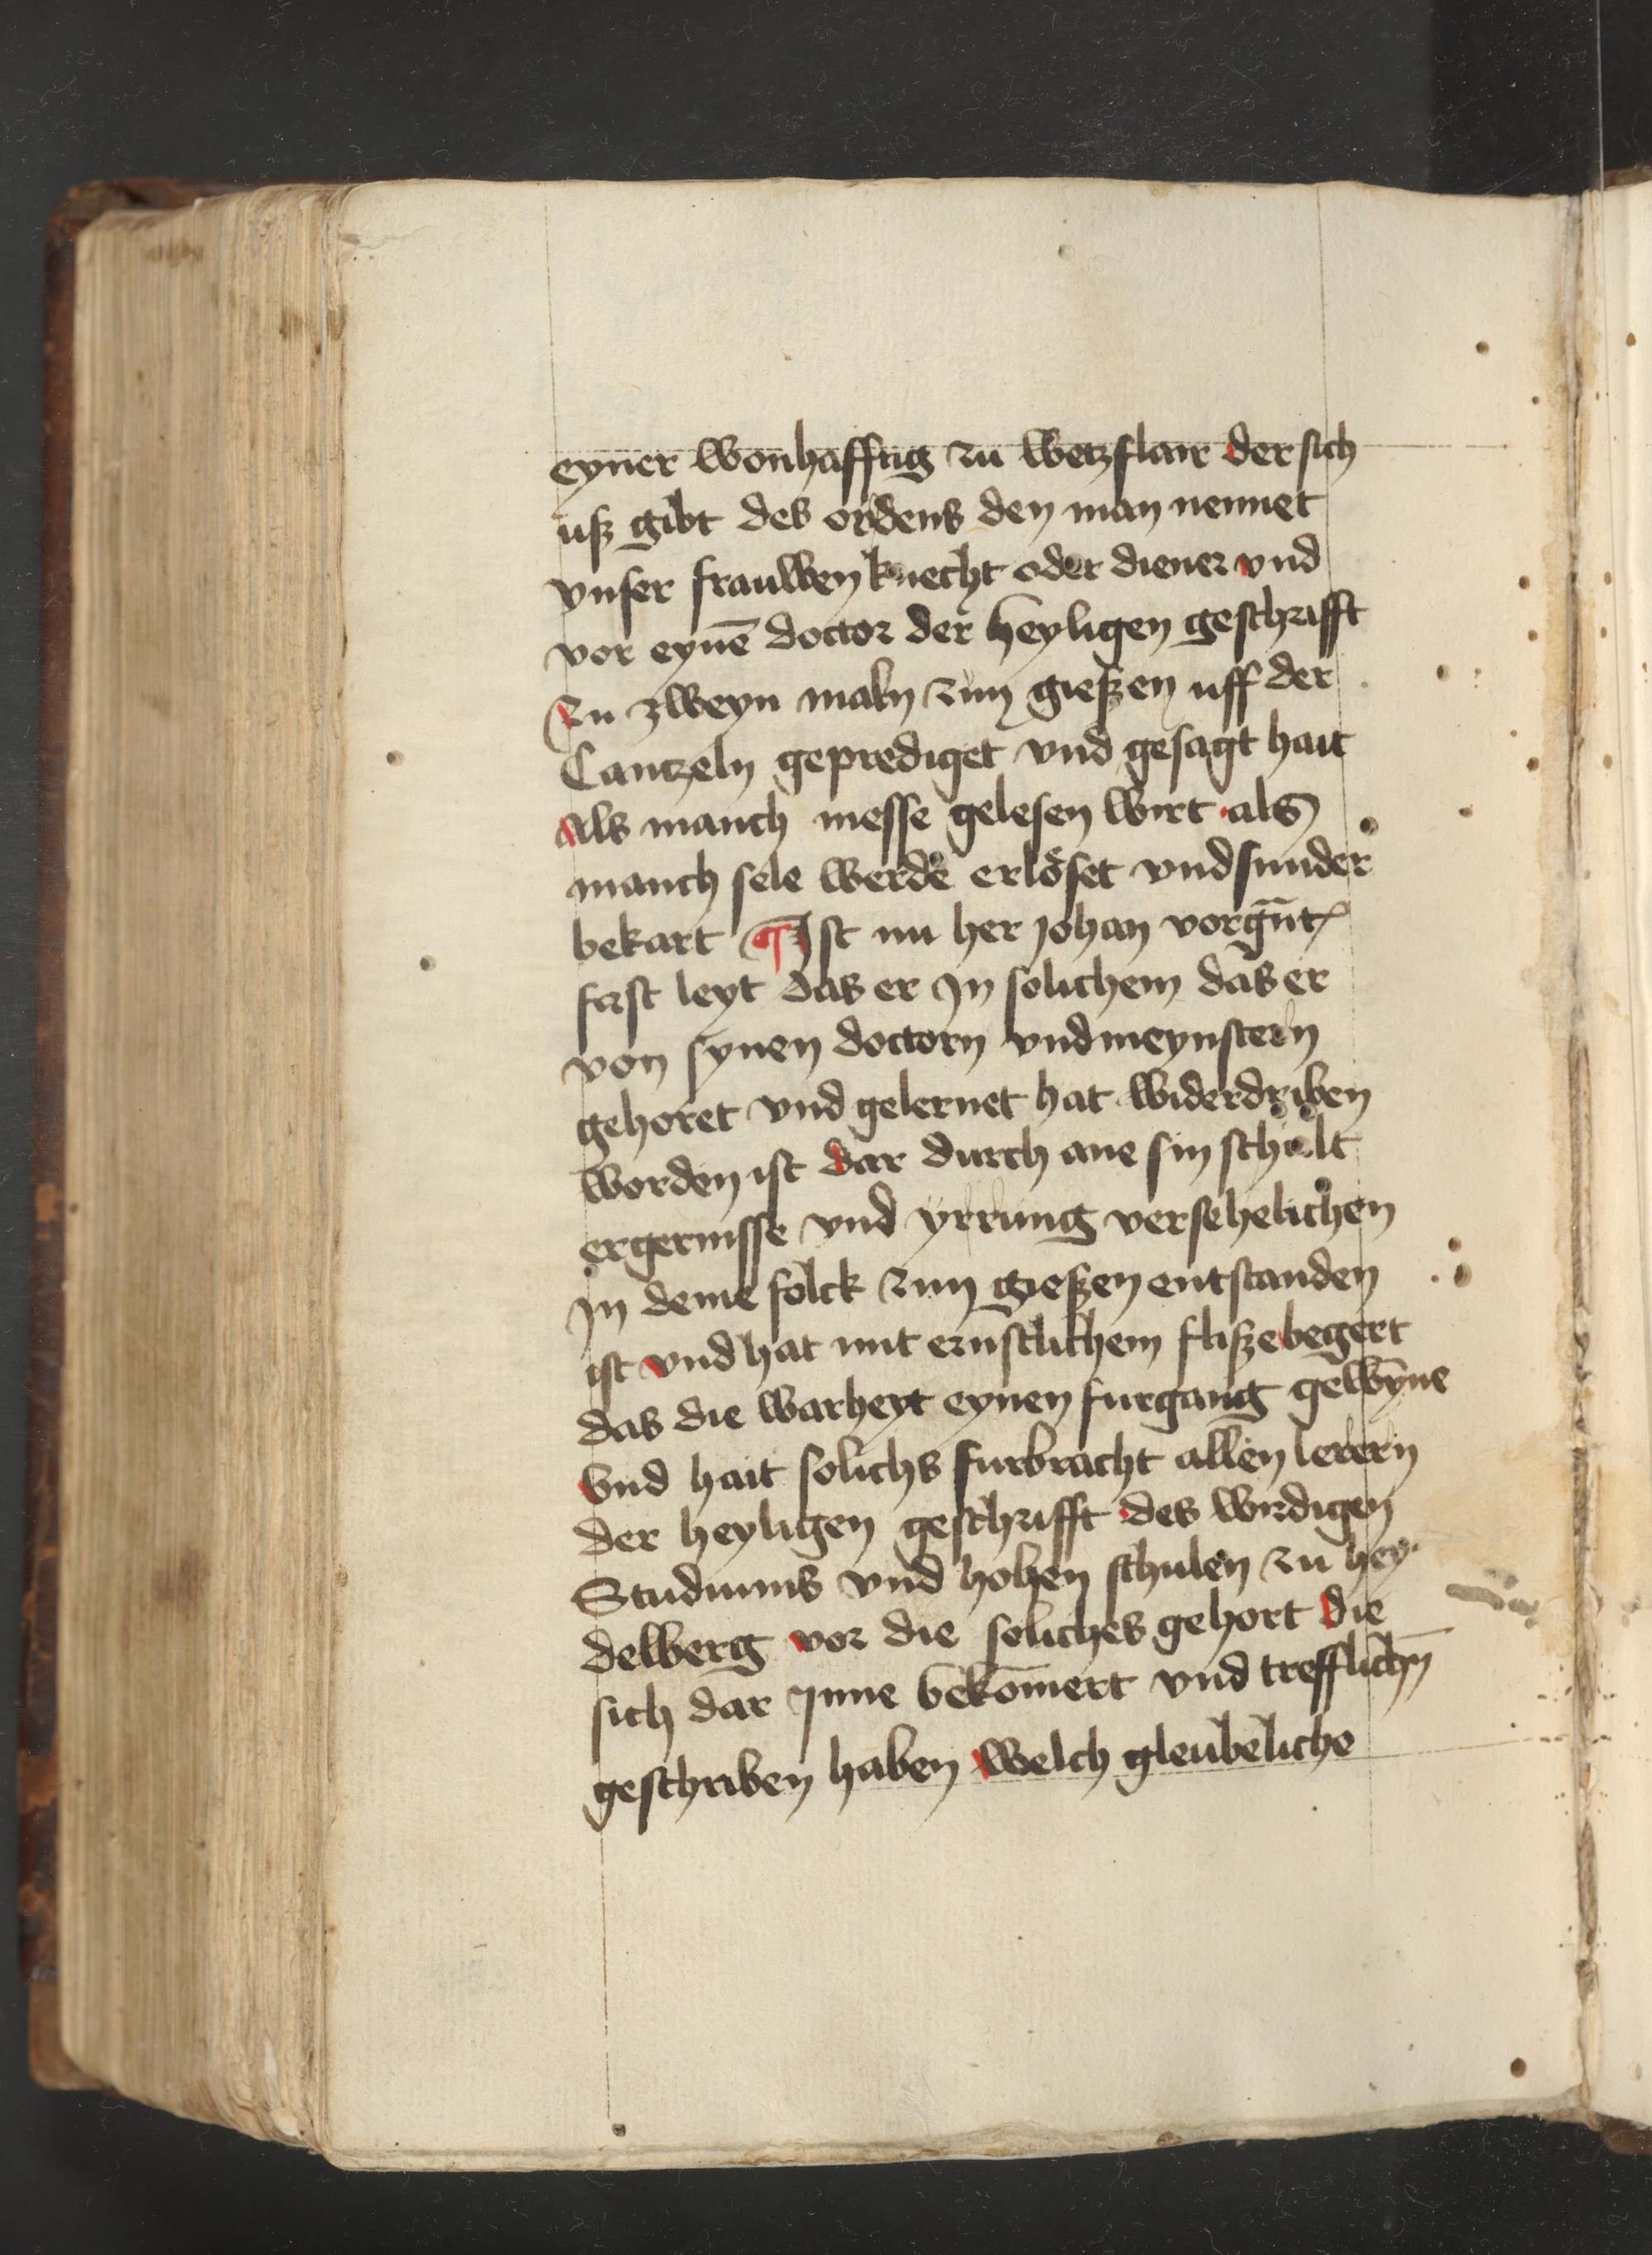 eyner wonhafftig zu wetzflair der sich
uß gibt des ordens den man nennet
vnser frauwen knecht oder diener vnd
vor eynē doctor der heyligen geschrifft
Zu zweyn maln zum gießen uff der
Cantzeln geprediget vnd gesagt hait
Als manch messe gelesen wirt als
manch sele werde erlöset vnd sunder
bekart ¶ Ist nu her Johan vorgn̄t
fast leyt das er In solichem das er
von synen doctorn vnd meynstern
gehoret vnd gelernet hat widerdriben
worden ist dar durch ane sin schult
ergernisse vnd yrrung versehelichen
In deme folck zum gießen entstanden
ist vnd hat mit ernstlichem fliße begert
das die warheyt eynen furgang gewȳne
Vnd hait solichs furbracht allen lerern
der heyligen geschrifft des wirdigen
Studiums vnd hohen schulen zu hey
delberg vor die soliches gehort die
sich dar Inne bekōmert vnd trefflichn̄
geschriben haben welch gleubeliche